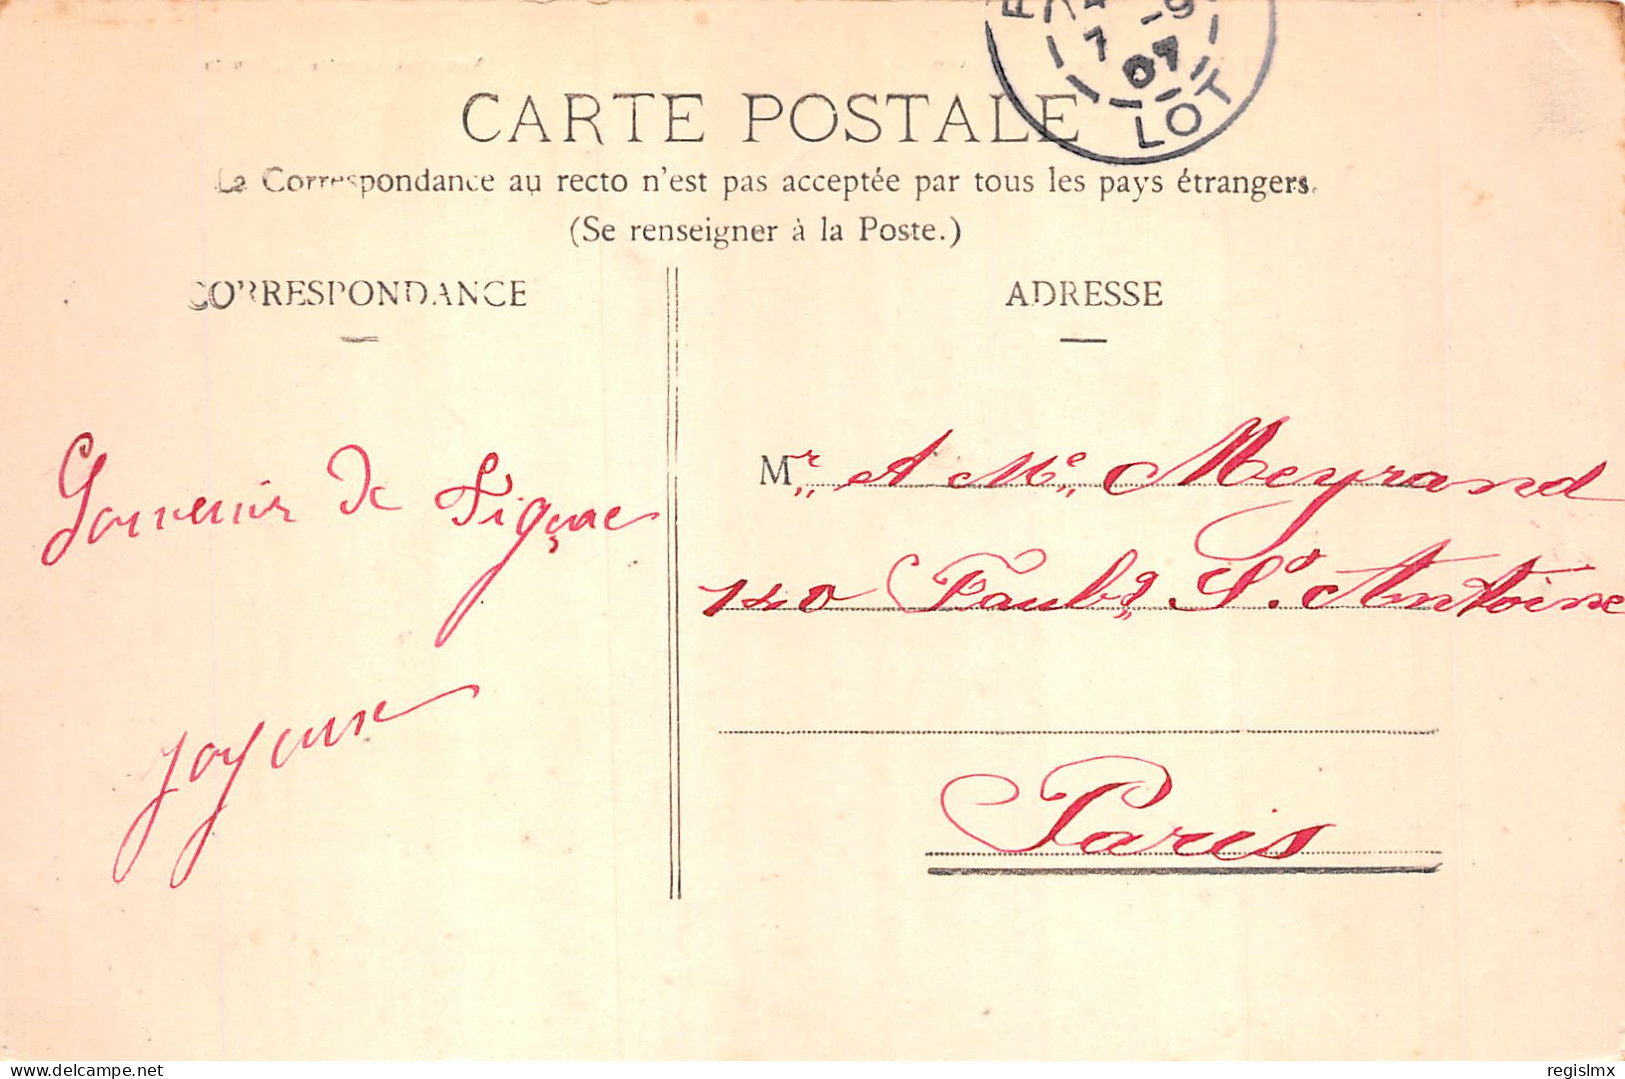 CARTE POSTALE
La Correspondance au recto n'est pas acceptée par tous les pays étrangers.
(Se renseigner à la Poste.)
7
-9
07
LOT
CORRESPONDANCE
ADRESSE
Souvenir De Figeac
Mr et Me Meyrand
140 Faubg St. Antoine
Paris
delcampe.net
regislmx